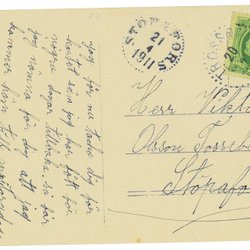 Jag får nu tacka dig för
kortet som jag har fått för
några dagar tillbaka så har
jag nämna för dig att jag
kommer hem till
STÖPAFORS
21
4
1911
20
Herr Vikto
Olsson Tosseb
Stöpafo